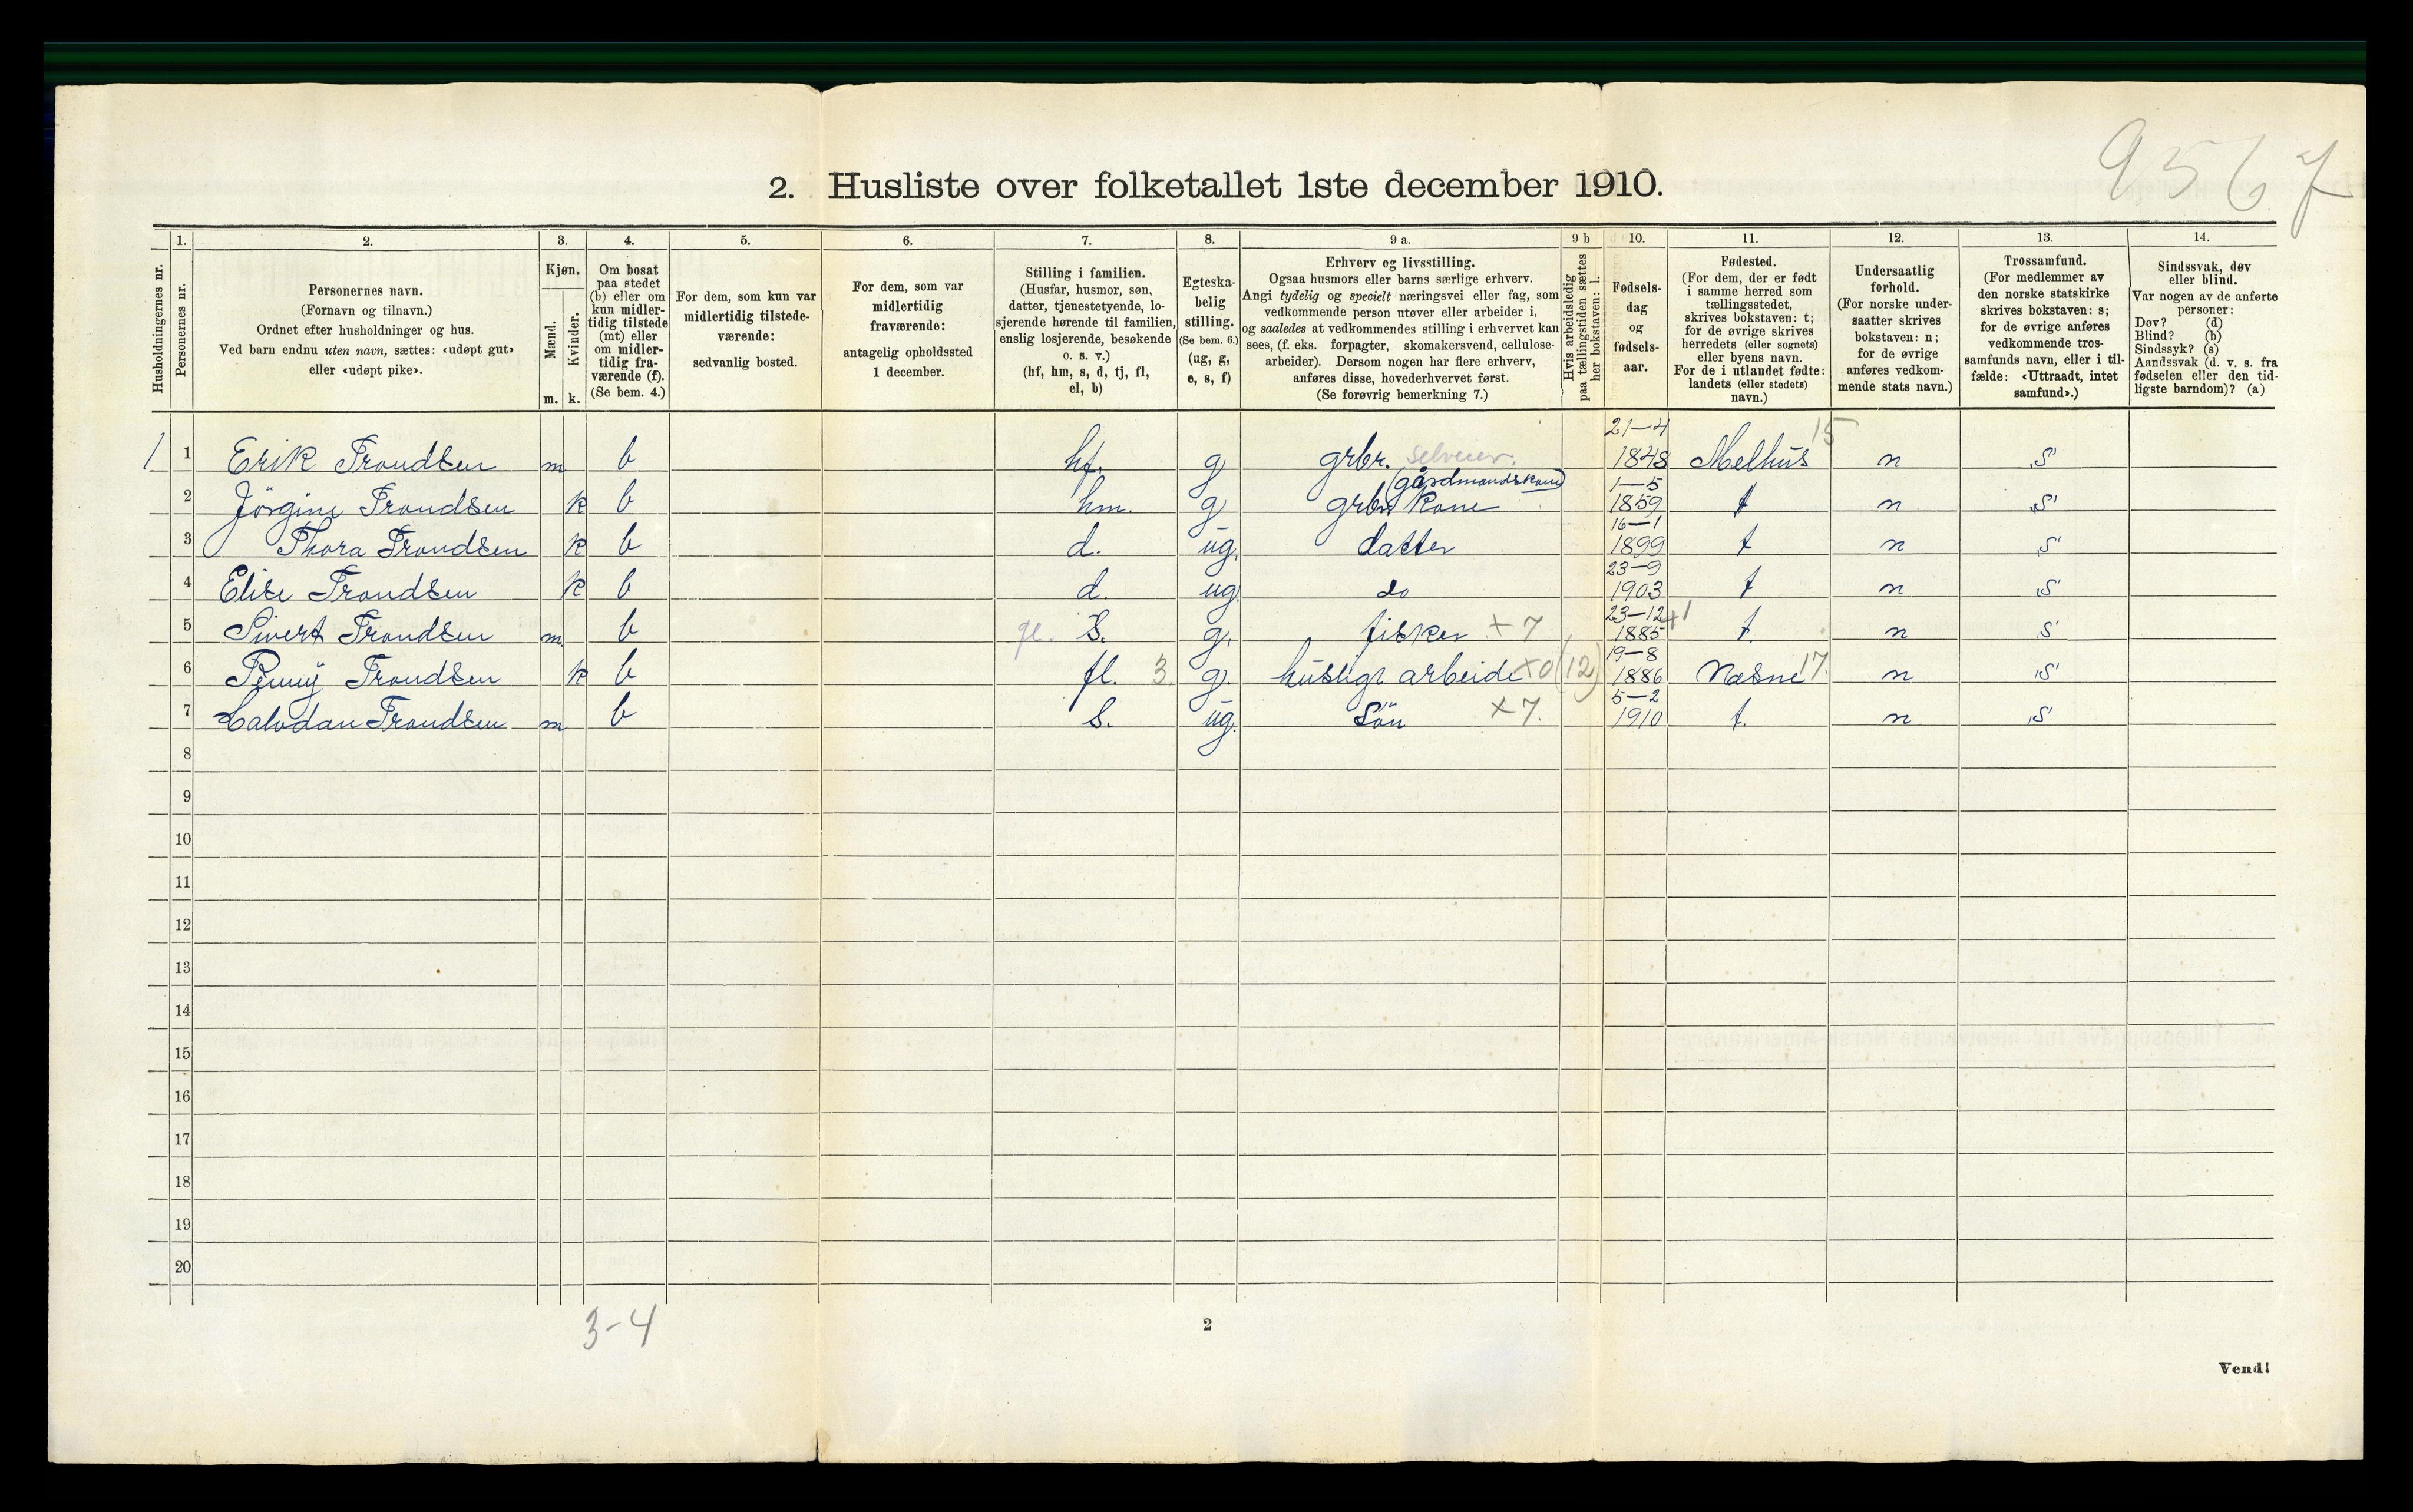 9567
2. Husliste over folketallet 1ste december 1910.
Husholdningernes nr.
1.
Personernes nr.
2.
Personernes navn.
(Fornavn og tilnavn.)
Ordnet efter husholdninger og hus.
Ved barn endnu uten navn, sættes: «udøpt gut»
eller «udøpt pike».
3.
Kjøn.
Mænd.
Kvinder.
m. k.
4.
Om bosat
paa stedet
(b) eller om
kun midler-
tidig tilstede
(mt) eller
om midler-
tidig fra-
værende (f).
(Se bem. 4.)
5.
For dem, som kun var
midlertidig tilstede-
værende:
sedvanlig bosted.
6.
For dem, som var
midlertidig
fraværende:
antagelig opholdssted
1 december.
7.
Stilling i familien.
(Husfar, husmor, søn,
datter, tjenestetyende, lo-
sjerende hørende til familien,
enslig losjerende, besøkende
o. s. v.)
(hf, hm, s, d, tj, fl,
el, b)
8.
Egteska-
belig
stilling.
(Se bem. 6.)
(ug, g,
e, s, f)
9 a.
Erhverv og livsstilling.
Ogsaa husmors eller barns særlige erhverv.
Angi tydelig og specielt næringsvei eller fag, som
vedkommende person utøver eller arbeider i,
og saaledes at vedkommendes stilling i erhvervet kan
sees, (f. eks. forpagter, skomakersvend, cellulose-
arbeider). Dersom nogen har flere erhverv,
anføres disse, hovederhvervet først.
(Se forøvrig bemerkning 7.)
9 b
Hvis arbeidsledig
paa tællingstiden sættes
her bokstaven: l.
10.
Fødsels-
dag
og
fødsels-
aar.
11.
Fødested.
(For dem, der er født
i samme herred som
tællingsstedet,
skrives bokstaven: t;
for de øvrige skrives
herredets (eller sognets)
eller byens navn.
For de i utlandet fødte:
landets (eller stedets)
navn.)
12.
Undersaatlig
forhold.
(For norske under-
saatter skrives
bokstaven: n;
for de øvrige
anføres vedkom-
mende stats navn.)
13.
Trossamfund.
(For medlemmer av
den norske statskirke
skrives bokstaven: s;
for de øvrige anføres
vedkommende tros-
samfunds navn, eller i til-
fælde: «Uttraadt, intet
samfund».)
14.
Sindssvak, døv
eller blind.
Var nogen av de anførte
personer:
Døv? (d)
Blind? (b)
Sindssyk? (s)
Aandssvak (d. v. s. fra
fødselen eller den tid-
ligste barndom)? (a)
1 1 Erik Trondsen m b hf. g grbr. selveier. 21-4 1848 Melhus 15 n S
2 Jörgine Trondsen k b hm. g grbr kone (gårdmandskone) 1-5 1859 t n S
3 Thora Trondsen k b d. ug. datter 16-1 1899 t n S
4 Elise Trondsen k b d. ug. do 23-9 1903 t n S
5 Sivert Trondsen m b gl. S. g. fisker +7 23-12 +1 1885 t. n S
6 Penny Trondsen k b fl. 3. g. husligt arbeide +0 (12) 19-8 1886 Næsne 17. n S
7 Halvdan Trondsen m b S. ug. Sön +7. 5-2 1910 t. n S
8
9
10
11
12
13
14
15
16
17
18
19
20
3-4
2
Vend!